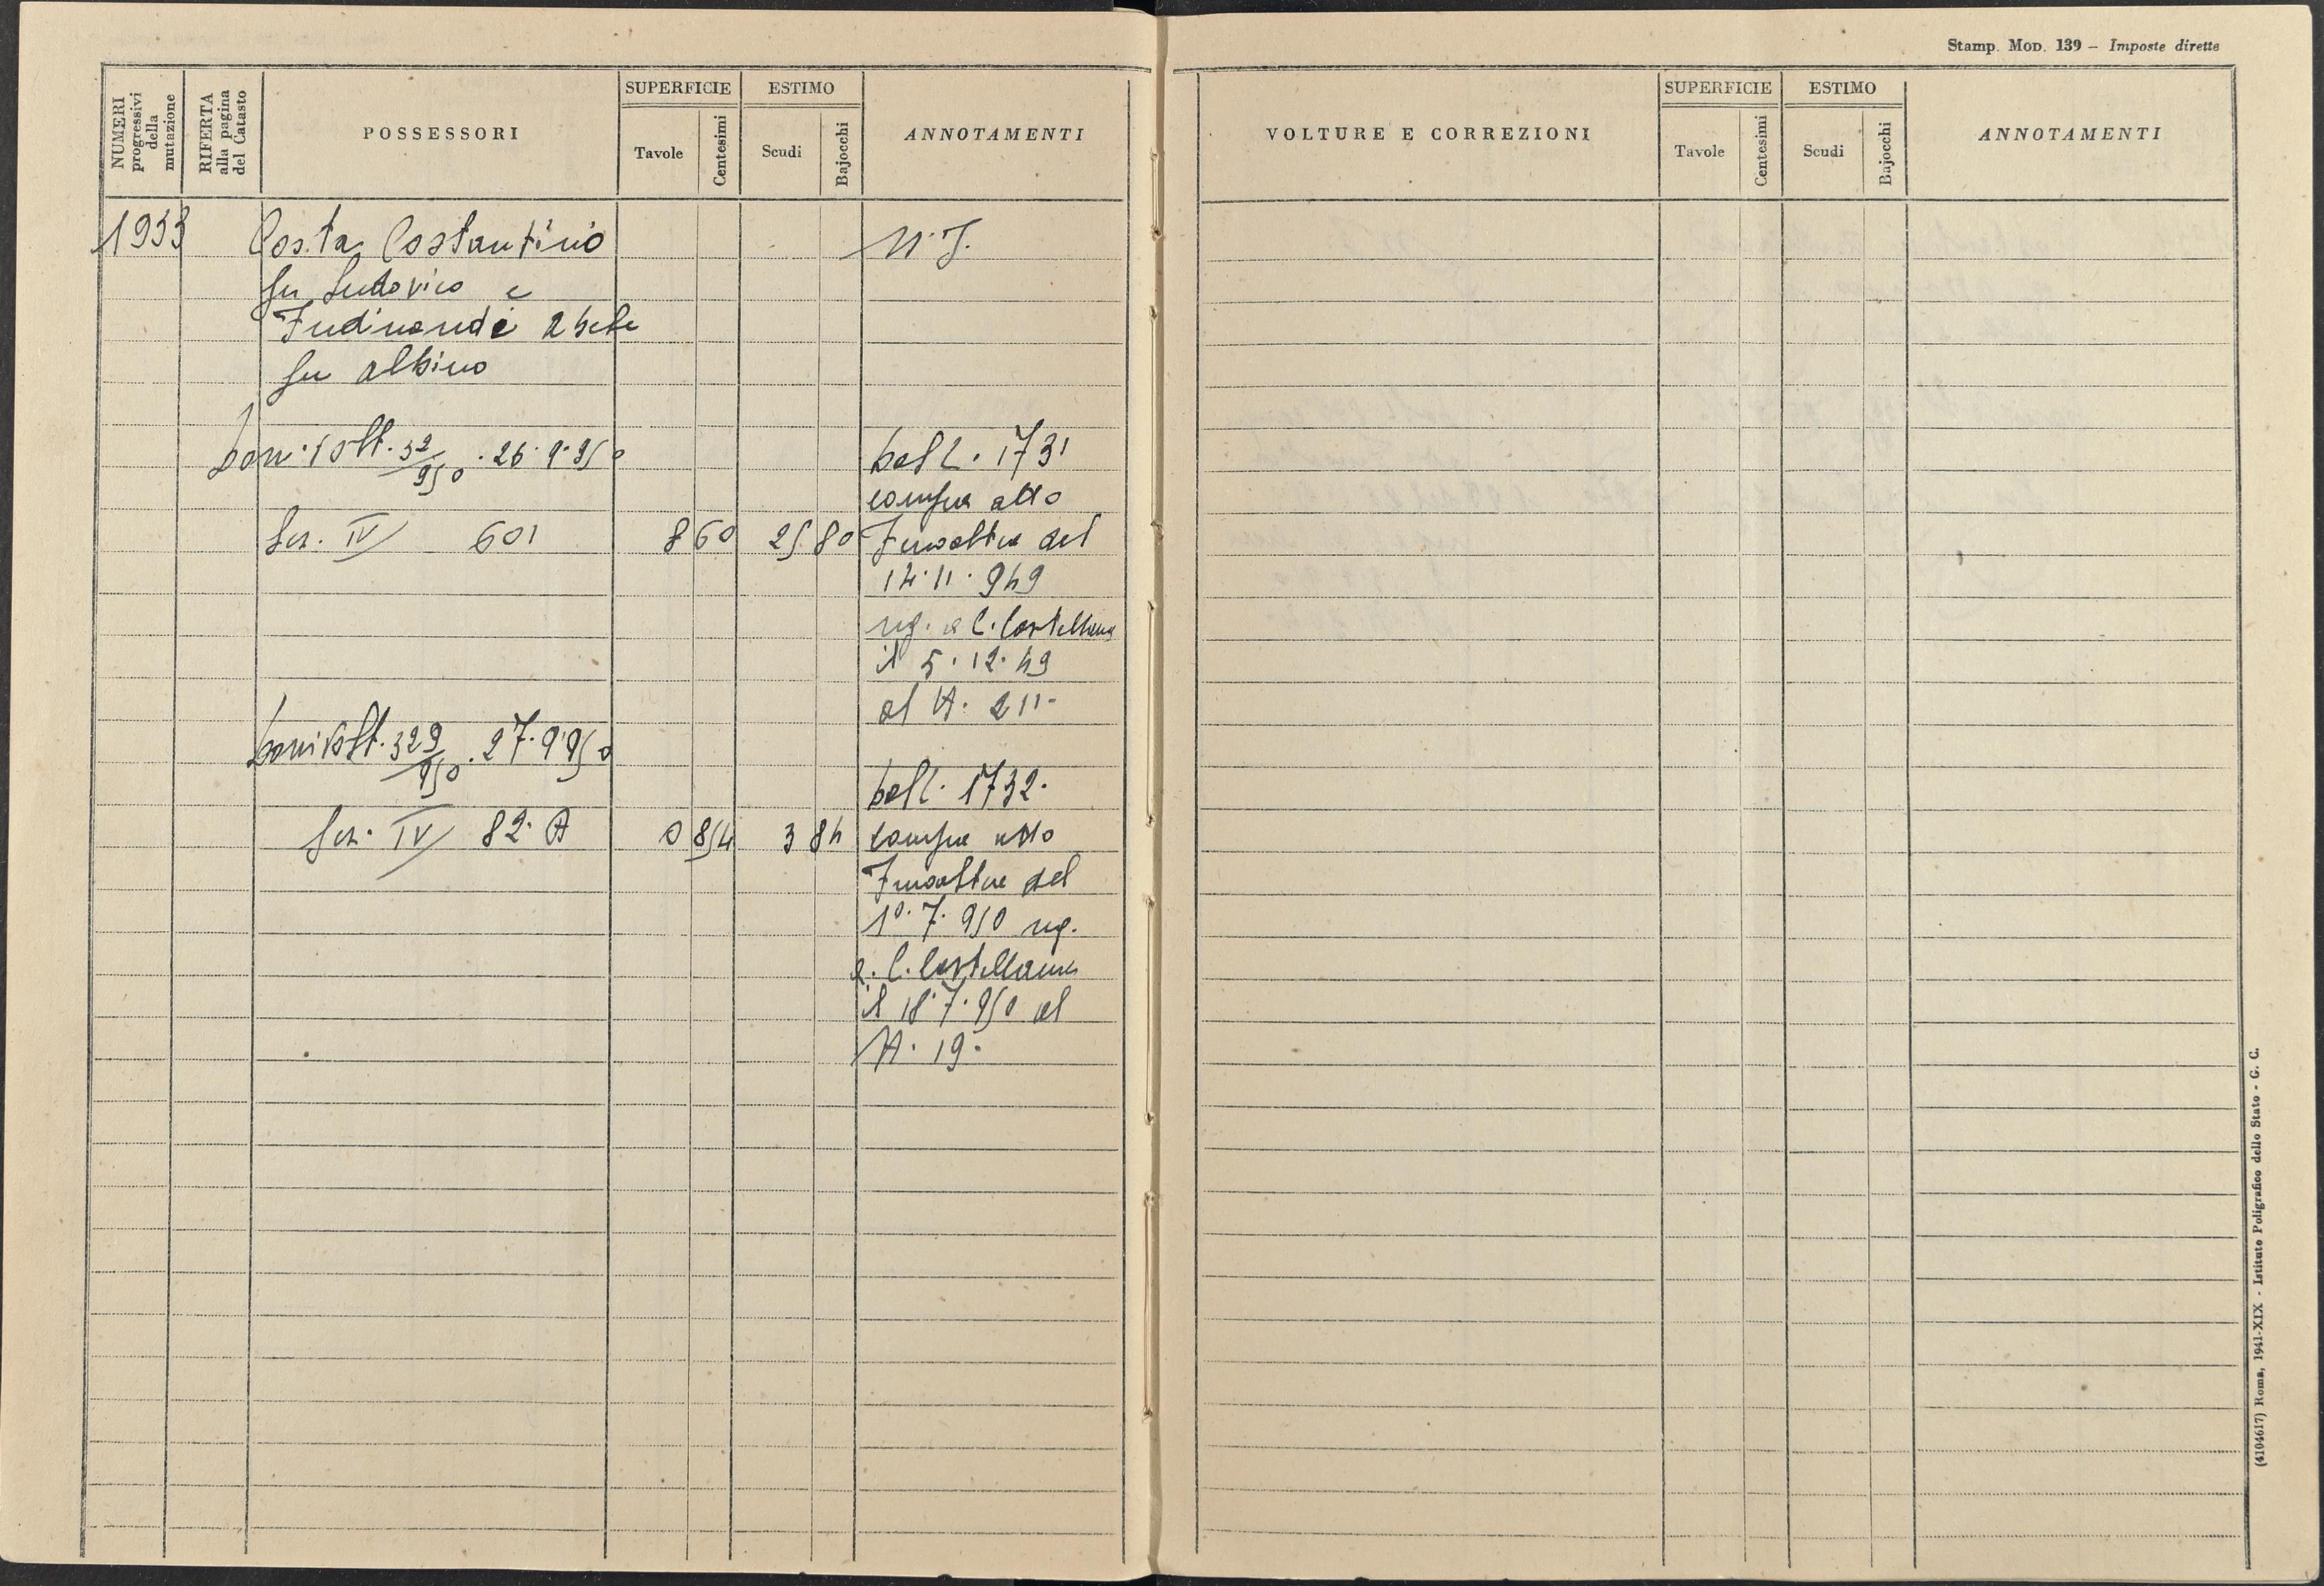 Stamp. Mod. 139 – Imposte dirette
NUMERI progressivi della mutazione
RIFERTA alla pagina del Catasto
POSSESSORI
SUPERFICIE
Tavole
Centesimi
ESTIMO
Scudi
Bajocchi
ANNOTAMENTI
VOLTURE E CORREZIONI
SUPERFICIE
Tavole
Centesimi
ESTIMO
Scudi
Bajocchi
ANNOTAMENTI
1933 Costa Costantino
fu Ludovico e
fu Albino
26.9.950
boll. 1731
compra atto
Sez. IV 601 8 60 25 80
del
14.11.949
reg. a C. Castellana
il 5.12.49
al N. 211.
329/950 . 27.9.950
boll. 1732.
Sez. IV 82. A 0 854 3 84 compra atto
del
1º.7.950 reg.
a. C. Castellana
il 18.7.950 al
N. 19.
(4104617) Roma, 1941-XIX - Istituto Poligrafico dello Stato - G. C.